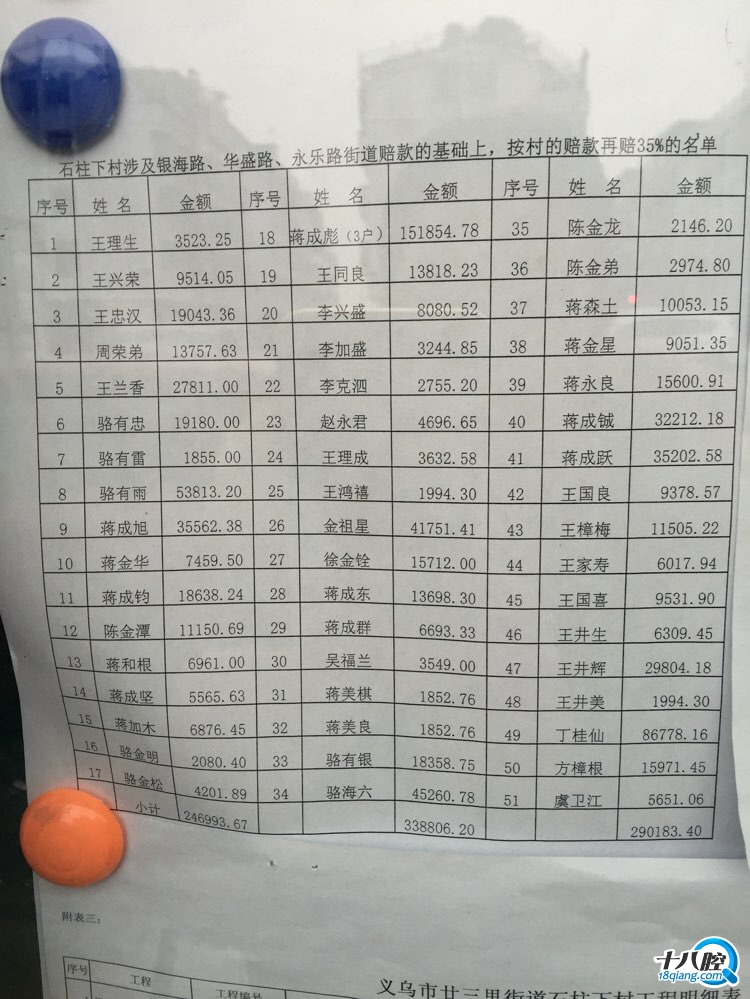 石柱下村涉及银海路、华盛路、永乐路街道赔款的基础上，按村的赔款再赔35%的名单
序号 姓名 金额 序号 姓名 金额 序号 姓名 金额
1 王理生 3523.25 18 蒋成彪（3户） 151854.78 35 陈金龙 2146.20
2 王兴荣 9514.05 19 王同良 13818.23 36 陈金弟 2974.80
3 王忠汉 19043.36 20 李兴盛 8080.52 37 蒋森土 10053.15
4 周荣弟 13757.63 21 李加盛 3244.85 38 蒋金星 9051.35
5 王兰香 27811.00 22 李克泗 2755.20 39 蒋永良 15600.91
6 骆有忠 19180.00 23 赵永君 4696.65 40 蒋成铖 32212.18
7 骆有雷 1855.00 24 王理成 3632.58 41 蒋成跃 35202.58
8 骆有雨 53813.20 25 王鸿禧 1994.30 42 王国良 9378.57
9 蒋成旭 35562.38 26 金祖星 41751.41 43 王樟梅 11505.22
10 蒋金华 7459.50 27 徐金铨 15712.00 44 王家寿 6017.94
11 蒋成钧 18638.24 28 蒋成东 13698.30 45 王国喜 9531.90
12 陈金潭 11150.69 29 蒋成群 6693.33 46 王井生 6309.45
13 蒋和根 6961.00 30 吴福兰 3549.00 47 王井辉 29804.18
14 蒋成坚 5565.63 31 蒋美棋 1852.76 48 王井美 1994.30
15 蒋加木 6876.45 32 蒋美良 1852.76 49 丁桂仙 86778.16
16 骆金明 2080.40 33 骆有银 18358.75 50 方樟根 15971.45
17 骆金松 4201.89 34 骆海六 45260.78 51 虞卫江 5651.06
小计 246993.67 338806.20 290183.40
附表三：
义乌市廿三里街道石柱下村工程明细表
序号 工程 工程编号
十八腔
18qiang.com